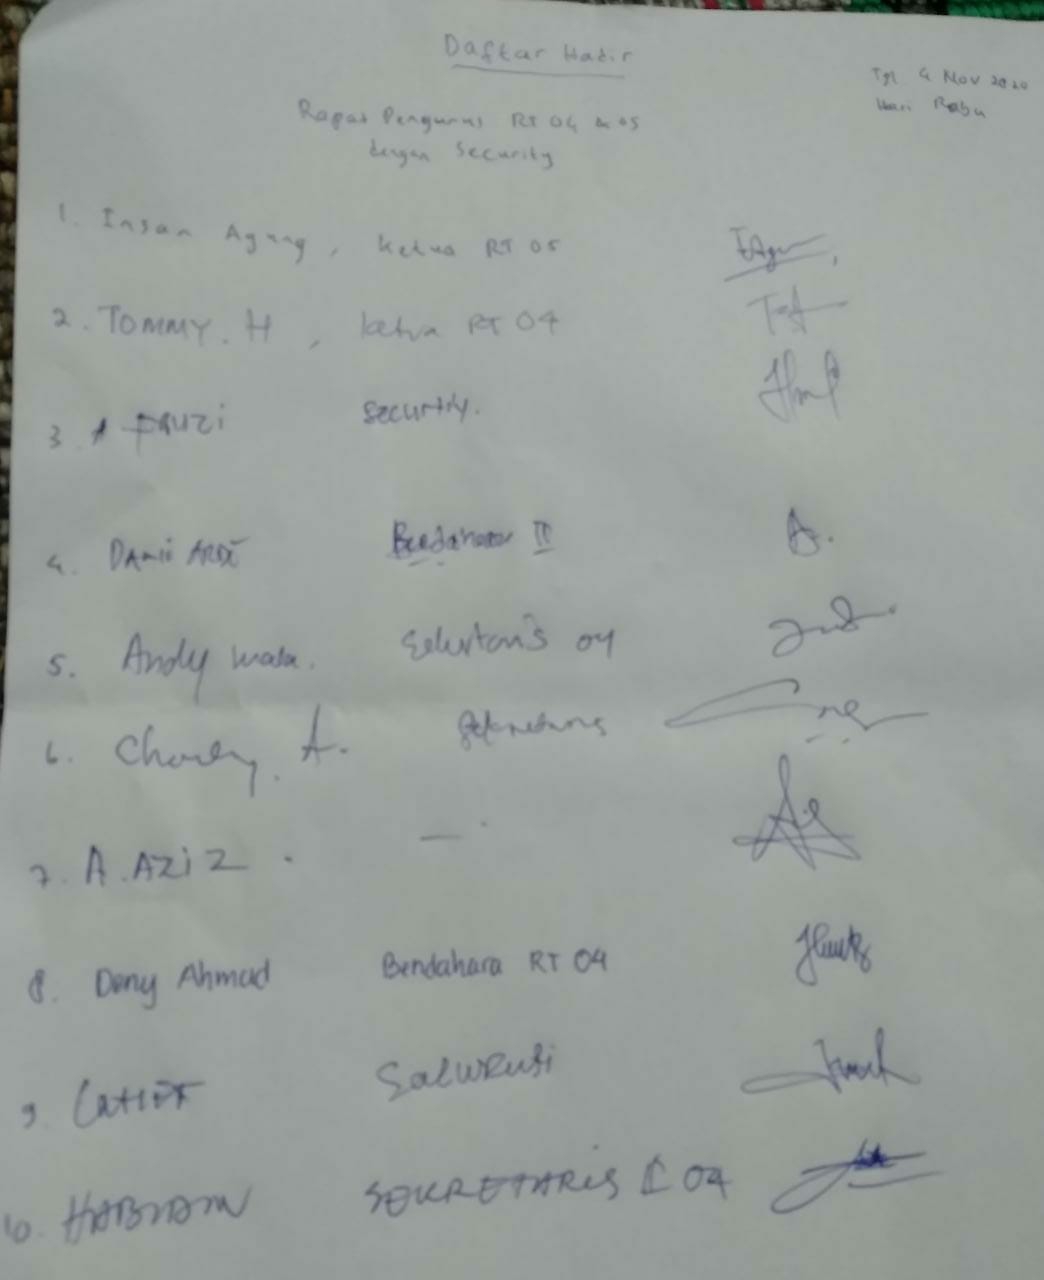 Daftar Hadir
Tgl 4 Nov 2020
Hari Rabu
Rapat Pengurus RT 04 & 05
dengan Security
1. Insan Agung, Ketua RT 05
2. TOMMY. H, ketua RT 04
3. A FAUZi security.
4. DAMII ARDI Bendahara II
5. Andy Sekretaris 04
6. A. Sekretaris
7. A. AZiZ. -
8. Dony Ahmad Bendahara RT 04
9.
10. SEKRETARIS 04